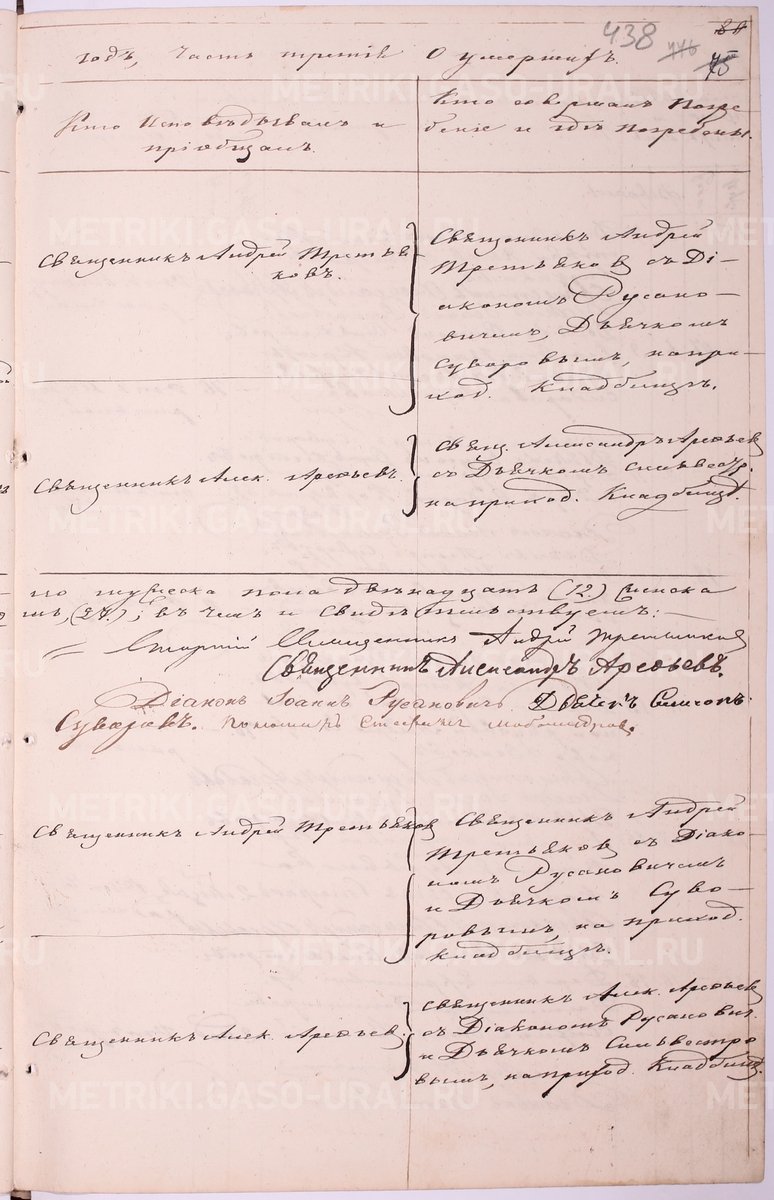 438
годъ, Часть третія О умершихъ.
75
Кто Исповѣдывалъ и
пріобщалъ.
Кто совершалъ Погре-
беніе и гдѣ погребены.
Священникъ Андрей Третья-
ковъ.
Священникъ Андрей
Третьяковъ съ Ді-
акономъ Русано-
вичемъ, Дьячкомъ
Суворовымъ, на при-
ход. Кладбищѣ.
Священникъ Алек. Арефьевъ.
Свящ. Александръ Арефьевъ
съ Дьячкомъ Сильвестр.
на приход. Кладбищѣ.
го мужеска пола двѣнадцать (12.) Женска
въ чемъ и Свидѣтельствуемъ:
Священникъ Андрей Третьяковъ
Священникъ Александръ Арефьевъ.
Діаконъ Іоаннъ Русановичъ. Дьячекъ Симеонъ
Суворовъ. Пономарь
Священникъ Андрей Третьяковъ
Священникъ Андрей
Третьяковъ съ Діако-
номъ Русановичемъ
и Дьячкомъ Суво-
ровымъ, на приход.
Кладбищѣ.
Священникъ Алек. Арефьевъ.
Священникъ Алек. Арефьевъ
съ Діакономъ Русанович.
и Дьячкомъ Сильвестро
вымъ, на приход. Кладбищѣ.
METRIKI.GASO-URAL.RU